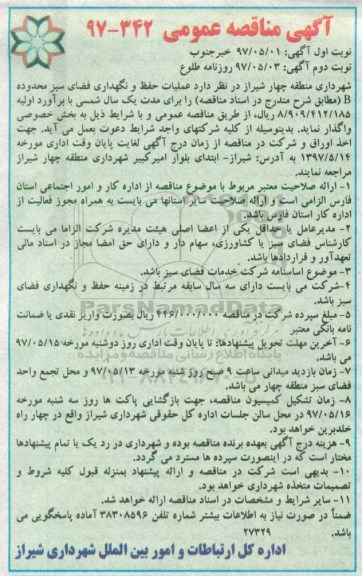 آگهی مناقصه عمومی ۳۴۲-۹۷
نوبت اول آگهی: ۹۷/۰۵/۰۱ خبرجنوب
نوبت دوم آگهی: ۹۷/۰۵/۰۳ روزنامه طلوع
شهرداری منطقه چهار شیراز در نظر دارد عملیات حفظ و نگهداری فضای سبز محدوده
B (مطابق شرح مندرج در اسناد مناقصه) را برای مدت یک سال شمسی با برآورد اولیه
۸/۹۰۹/۴۱۲/۱۸۵ ریال، از طریق مناقصه عمومی و با شرایط ذیل به بخش خصوصی
واگذار نماید. بدینوسیله از کلیه شرکتهای واجد شرایط دعوت بعمل می آید. جهت
اخذ اوراق و شرکت در مناقصه از زمان درج آگهی لغایت پایان وقت اداری مورخه
۱۳۹۷/۵/۱۴ به آدرس: شیراز- ابتدای بلوار امیرکبیر شهرداری منطقه چهار شیراز
مراجعه نمایند.
۱- ارائه صلاحیت معتبر مربوط با موضوع مناقصه از اداره کار و امور اجتماعی استان
فارس الزامی است و ارائه صلاحیت سایر استانها می بایست به همراه مجوز فعالیت از
اداره کار استان فارس باشد.
۲- مدیرعامل یا حداقل یکی از اعضا اصلی هیئت مدیره شرکت الزاما می بایست
کارشناس فضای سبز یا کشاورزی، سهام دار و دارای حق امضا مجاز در اسناد مالی
تعهدآور و قراردادها باشد.
۳- موضوع اساسنامه شرکت خدمات فضای سبز باشد.
۴-شرکت می بایست دارای سه سال سابقه مرتبط در زمینه حفظ و نگهداری فضای
سبز باشد.
۵- مبلغ سپرده شرکت در مناقصه ۴۴۶/۰۰۰/۰۰۰ ریال بصورت واریز نقدی یا ضمانت
نامه بانکی معتبر
۶- آخرین مهلت تحویل پیشنهادها: تا پایان وقت اداری روز دوشنبه مورخه ۹۷/۰۵/۱۵
می باشد.
۷- زمان بازدید میدانی ساعت ۹ صبح روز شنبه مورخه ۹۷/۰۵/۱۳ و محل تجمع واحد
فضای سبز منطقه چهار می باشد.
۸- زمان تشکیل کمیسیون مناقصه، جهت بازگشایی پاکت ها روز سه شنبه مورخه
۹۷/۰۵/۱۶ در محل سالن جلسات اداره کل حقوقی شهرداری شیراز واقع در چهار راه
خلدبرین خواهد بود.
۹- هزینه درج آگهی بعهده برنده مناقصه بوده و شهرداری در رد یک یا تمام پیشنهادها
مختار است که در اینصورت سپرده ها مسترد می گردد.
۱۰- بدیهی است شرکت در مناقصه و ارائه پیشنهاد بمنزله قبول کلیه شروط و
تصمیمات متخذه شهرداری خواهد بود.
۱۱- سایر شرایط و مشخصات در اسناد مناقصه ارائه خواهد شد.
ضمناً در صورت نیاز به اطلاعات بیشتر شماره تلفن ۳۸۳۰۸۵۹۶ آماده پاسخگویی می
باشد. ۲۷۳۲۹
اداره کل ارتباطات و امور بین الملل شهرداری شیراز